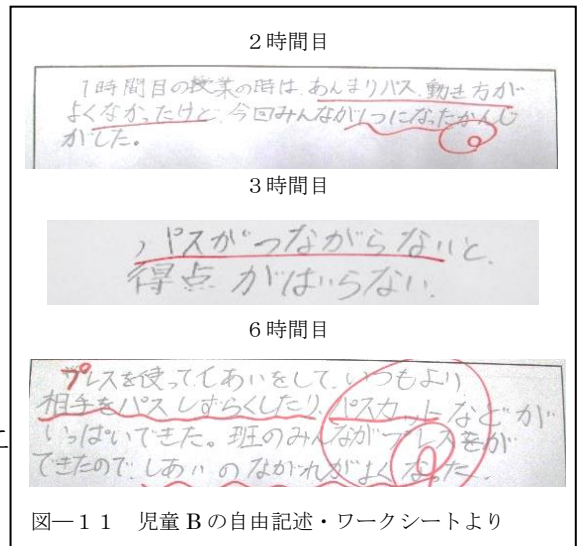 ２時間目
1時間目の授業の時は、あんまりパス、動き方が
よくなかったけど、今回みんなが1つになったかんじ
がした。
３時間目
パスがつながらないと、
得点がはいらない。
６時間目
プレスを使ってしあいをして、いつもより
相手をパスしずらくしたり、パスカットなどが
いっぱいできた。班のみんながプレスをが
できたので、しあいのながれがよくなった。
図―１１　児童 B の自由記述・ワークシートより